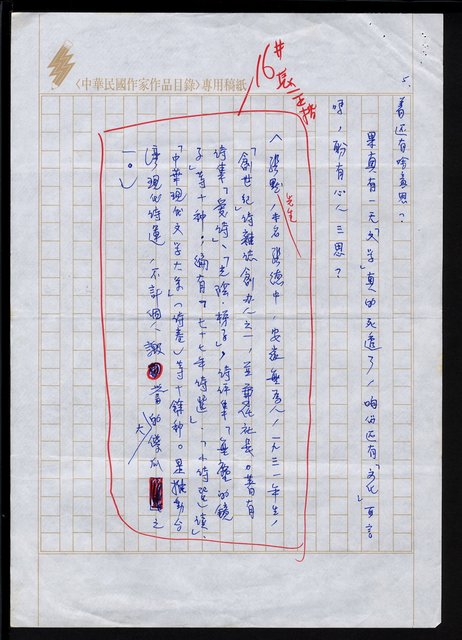 〈中華民國作家作品目錄〉專用稿紙
5.
16#長一正排
著还有啥意思？
果真有一天「文学」真的死透了，咱們还有「文化」可言
嗎，盼有心人三思？
〈張默，本名張德中，安徽無為人，一九三一年生，
先生
「創世紀」詩雜誌創办人之一，並兼任社長。著有
詩集「愛詩」、「光陰‧梯子」，詩評集「無塵的鏡
子」等十种；編有「七十七年詩選」、「小詩選讀」、
「中華現代文学大系」（詩卷）等十餘种。是推動台
灣現代詩運，不計個人的傻瓜之
大
一。〉